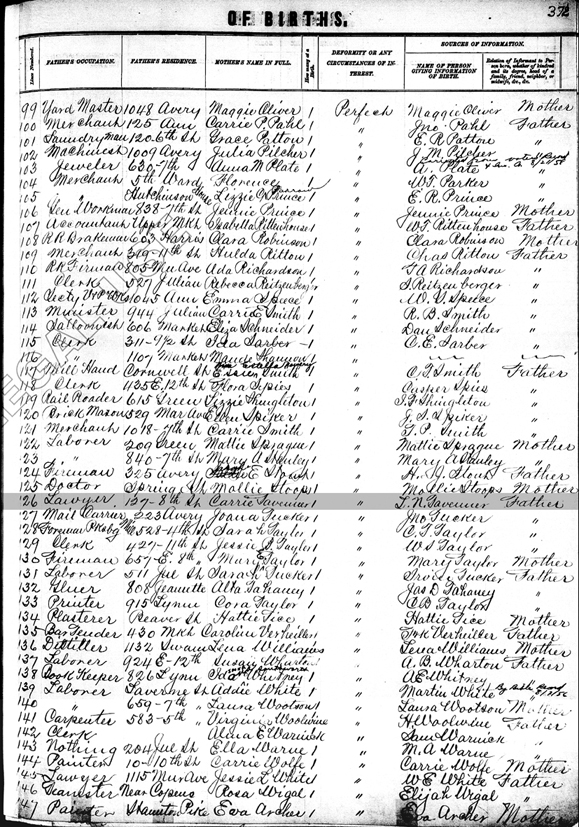 OF BIRTHS. 372
Line Numbered. FATHER'S OCCUPATION. FATHER'S RESIDENCE. MOTHER'S NAME IN FULL. DEFORMITY OR ANY CIRCUMSTANCES OF INTEREST. SOURCES OF INFORMATION. NAME OF PERSON GIVING INFORMATION OF BIRTH. Relation of Informant to Person born, whether of kindred and its degree, head of a family, friend, neighbor, or midwife, &c., &c.
99 Yard Master 1048 Avery Maggie Oliver 1 Perfect Maggie Oliver Mother
100 Merchant 125 Ann Carrie P. Pahl 1 " Jno Pahl Father
101 Laundryman 120 6th St Grace Patton 1 " E. R. Patton "
102 Machinest 1009 Avery Julia Pilcher 1 " J. M. Pilcher "
103 Jeweler 630 7th St Anna M. Plate 1 " A. Plate
104 Merchant 5th Ward Florence 1 " W. T. Parker "
105 " Hutchinson Lizzie O. Prince 1 " E. R. Prince "
106 Gen'l Workman 838-7th St Jennie Prince 1 " Jennie Prince Mother
107 Accountant Upper Mkt Isabella Rittenhouse 1 " W. T. Rittenhouse Father
108 RR Brakeman 603 Harris Clara Robinson 1 " Clara Robinson Mother
109 Merchant 319-11th St Hulda Ritton 1 " Chas Ritton Father
110 RR Fireman 805 Mur Ave Ada Richardson 1 " G A Richardson "
111 Clerk 527 Julian Rebecca Reitzenberger 1 " S Reitzenberger "
112 1045 Ann Emma Spece 1 " W. S. Spece "
113 Minister 944 Julian Carrie E Smith 1 " R. B. Smith "
114 606 Market Eliza Schneider 1 " Dan Schneider "
115 Clerk 311-1/2 St Ida Sarber 1 " C. E. Sarber "
116 " 1107 Market Maude Shannon 1 "
117 Mill Hand Cornwell St Essie Smith 1 " Smith Father
118 Clerk 435 E. 12th St Flora Spies 1 " Spies "
119 Rail Roader 615 Green Lizzie Shingleton 1 " Shingleton "
120 Brick Mason 529 Mar Ave Ellen Spiker 1 " J. S. Spiker "
121 Merchant 1018-7th St Carrie Smith 1 " G. P. Smith "
122 Laborer 209 Green Mattie Sprague 1 " Mattie Sprague Mother
23 " 840-7th St Mary A Stanley 1 " Mary A Stanley "
124 Fireman 325 Avery E Stout 1 " H. J. Stout Father
125 Doctor Spring St Mollie Stoops 1 " Mollie Stoops Mother
26 Lawyer 137-8th St Carrie Tavenner 1 " L. N. Tavenner Father
27 Mail Carrier 223 Avery Joana Tucker 1 " Jno Tucker "
28 Foreman 528-4th St Sarah Taylor 1 " C. T. Taylor "
29 Clerk 427-11th St Jessie S. Taylor 1 " W S Taylor "
130 Fireman 657-E. 8th Mary E Taylor 1 " Mary Taylor Mother
131 Laborer 511 Jul St Sarah Tucker 1 " Tucker Father
132 Gluer 808 Jeanette Alta Tahaney 1 " Jas D Tahaney "
133 Printer 915 Lynn Cora Taylor 1 " C B Taylor "
134 Plasterer Beaver St Hattie Tice 1 " Hattie Tice Mother
135 Bar Tender 430 Mkt Caroline Verheiller 1 " Verheiller Father
136 Distiller 1132 Swann Lena Williams 1 " Lena Williams Mother
137 Laborer 924 E-12th Susan Wharton 1 " A. B. Wharton Father
138 Book Keeper 826 Lynn Whitney 1 " A E Whitney "
139 Laborer Tavenner St Addie White 1 " Martin White
140 " 659-7th " Laura Wootson 1 " Laura Wootson Mother
141 Carpenter 583-5th " Virginia Woolwine 1 " H Woolwine Father
142 Clerk Alma E Warnick 1 " Sam Warnick "
143 Nothing 204 Jul St Ella Warne 1 " M. A Warne "
144 Painter 10-10th St Carrie Wolfe 1 " Carrie Wolfe Mother
145 Lawyer 1115 Mur Ave Jessie L White 1 " W E White Father
146 Teamster Near Cyprus Rosa Wigal 1 " Elijah Wigal "
147 Painter Staunton Pike Eva Archer 1 " Eva Archer Mother